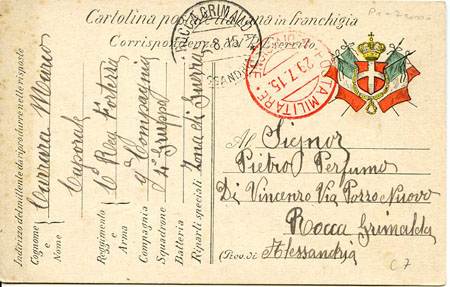 Cartolina postale italiana in franchigia
Corrispondenza del R. Esercito
ROCCA GRIMALDA
8.15
ALESSANDRIA
POSTA MILITARE
29.7.15
Indirizzo del mittente da riprodurre nelle risposte
Cognome e Nome
Carrara Mario
Caporale
Reggimento e Arma
6° Reg Forterra
Compagnia
Squadrone
Batteria
9ª Compagnia
4° Gruppo
Riparti speciali
Zona di Guerra
Al Signor
Pietro Perfumo
Di Vincenzo Via Pozzo Nuovo
Rocca Grimalda
(Prov. di Alessandria
C 7